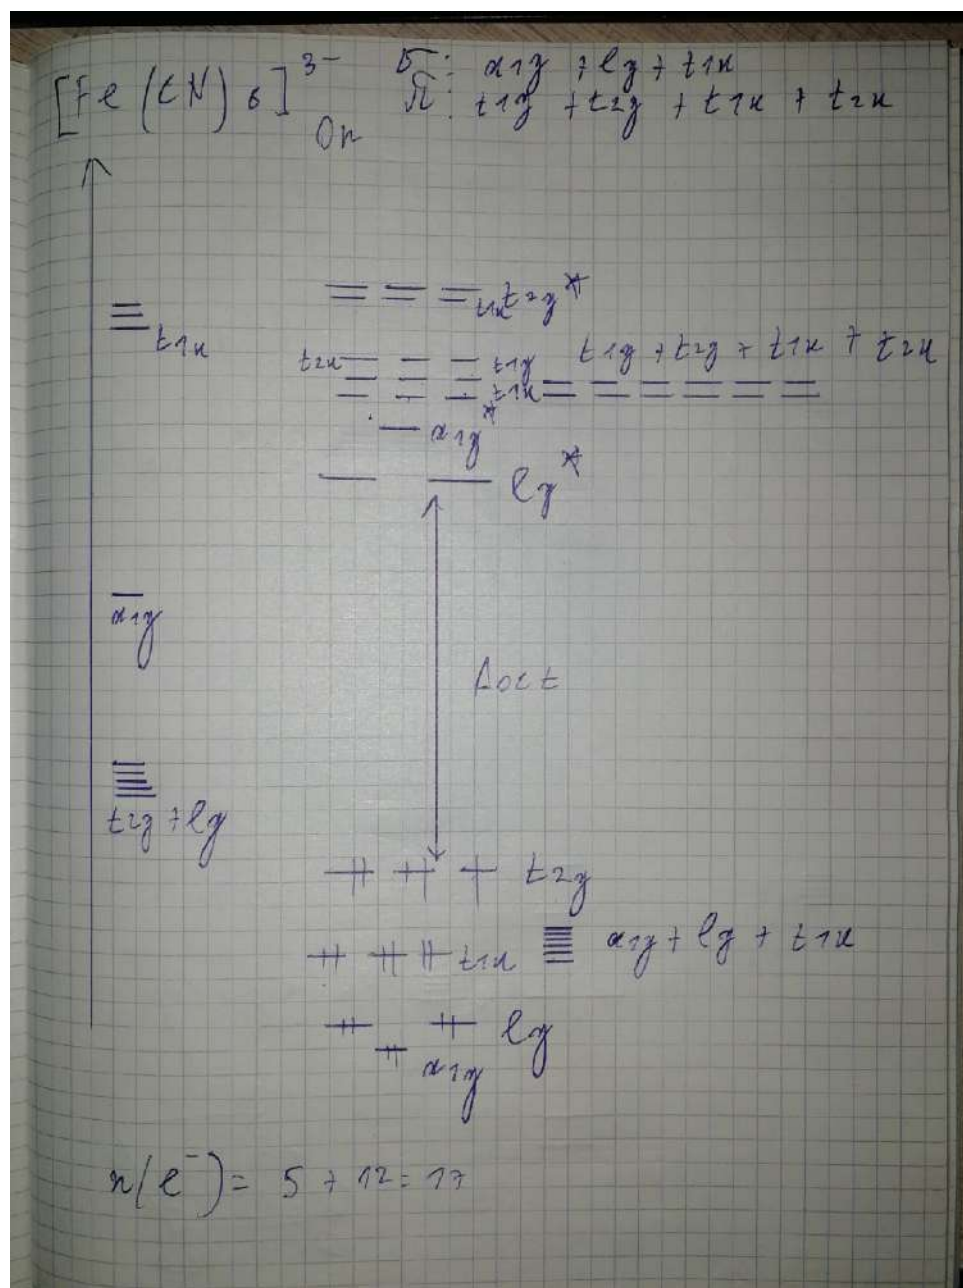 [Fe(CN)6]3- σ: a1g + eg + t1u
Oh π: t1g + t2g + t1u + t2u
t1u t2g*
t1u
t2u t1g t1g + t2g + t1u + t2u
t1u
a1g*
eg*
a1g
Δoct
t2g + eg
t2g
t1u a1g + eg + t1u
eg
a1g
n(e-) = 5 + 12 = 17